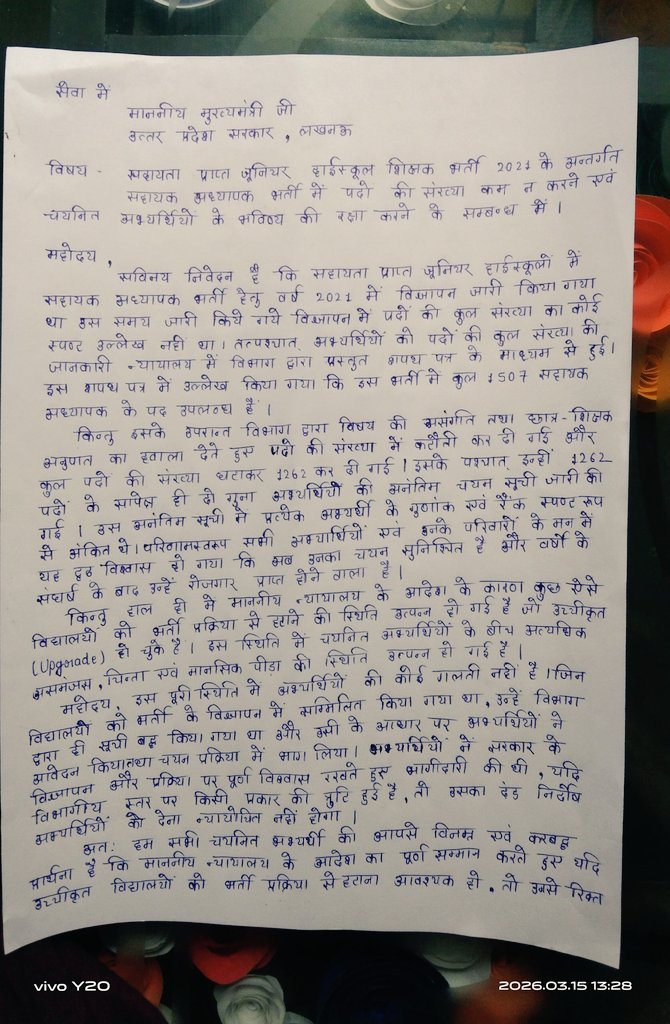 सेवा में
माननीय मुख्यमंत्री जी
उत्तर प्रदेश सरकार , लखनऊ
विषय - सहायता प्राप्त जूनियर हाईस्कूल शिक्षक भर्ती 2021 के अन्तर्गत
सहायक अध्यापक भर्ती में पदों की संख्या कम न करने एवं
चयनित अभ्यर्थियों के भविष्य की रक्षा करने के सम्बन्ध में ।
महोदय ,
सविनय निवेदन है कि सहायता प्राप्त जूनियर हाईस्कूलों में
सहायक अध्यापक भर्ती हेतु वर्ष 2021 में विज्ञापन जारी किया गया
था उस समय जारी किये गये विज्ञापन में पदों की कुल संख्या का कोई
स्पष्ट उल्लेख नहीं था । तत्पश्चात् अभ्यर्थियों को पदों की कुल संख्या की
जानकारी न्यायालय में विभाग द्वारा प्रस्तुत शपथ पत्र के माध्यम से हुई।
इस शपथ पत्र में उल्लेख किया गया कि इस भर्ती में कुल 1507 सहायक
अध्यापक के पद उपलब्ध है ।
किन्तु इसके उपरान्त विभाग द्वारा विषय की असंगति तथा छात्र-शिक्षक
अनुपात का हवाला देते हुए पदों की संख्या में कटौती कर दी गई और
कुल पदों की संख्या घटाकर 1262 कर दी गई । इसके पश्चात् इन्हीं 1262
पदों के सापेक्ष ही दो गुना अभ्यर्थियों की अनंतिम चयन सूची जारी की
गई । उस अनंतिम सूची में प्रत्येक अभ्यर्थी के गुणांक एवं रैंक स्पष्ट रूप
से अंकित थे। परिणामस्वरूप सभी अभ्यार्थियों एवं उनके परिवारों के मन में
यह दृढ़ विश्वास हो गया कि अब उनका चयन सुनिश्चित है और वर्षों के
संघर्ष के बाद उन्हें रोजगार प्राप्त होने वाला है ।
किन्तु हाल ही में माननीय न्यायालय के आदेश के कारण कुछ ऐसे
विद्यालयों को भर्ती प्रक्रिया से हटाने की स्थिति उत्पन्न हो गई है जो उच्चीकृत
(Upgrade) हो चुके है । इस स्थिति में चयनित अभ्यर्थियों के बीच अत्यधिक
असमंजस, चिन्ता एवं मानसिक पीड़ा की स्थिति उत्पन्न हो गई है ।
महोदय, इस पूरी स्थिति में अभ्यर्थियों की कोई गलती नहीं है । जिन
विद्यालयों को भर्ती के विज्ञापन में सम्मिलित किया गया था , उन्हें विभाग
द्वारा ही सूची बद्ध किया गया था और उसी के आधार पर अभ्यर्थियों ने
आवेदन किया तथा चयन प्रक्रिया में भाग लिया । अभ्यर्थियों ने सरकार के
विज्ञापन और प्रक्रिया पर पूर्ण विश्वास रखते हुए भागीदारी की थी , यदि
विभागीय स्तर पर किसी प्रकार की त्रुटि हुई है , तो उसका दंड निर्दोष
अभ्यर्थियों को देना न्यायोचित नहीं होगा ।
अतः हम सभी चयनित अभ्यर्थी की आपसे विनम्र एवं करबद्ध
प्रार्थना है कि माननीय न्यायालय के आदेश का पूर्ण सम्मान करते हुए यदि
उच्चीकृत विद्यालयों को भर्ती प्रक्रिया से हटाना आवश्यक हो , तो उनसे रिक्त
vivo Y20
2026.03.15 13:28